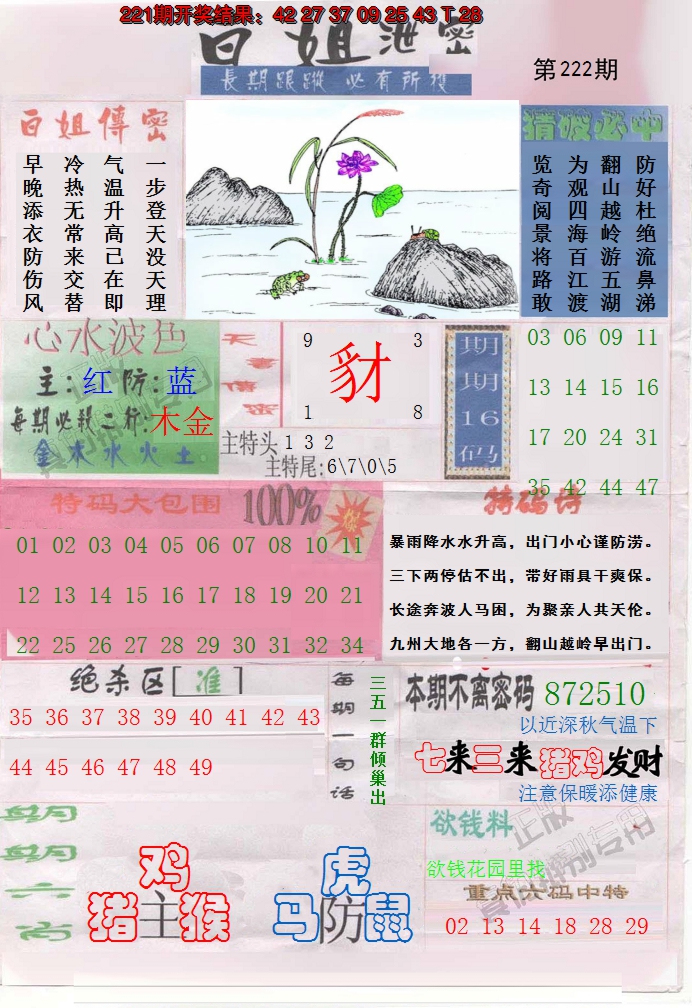 221期开奖结果：42 27 37 09 25 43 T 28
白姐泄密
長期跟蹤 必有所獲
第222期
白姐傳密
一步登天没天理
气温升高已在即
冷热无常来交替
早晚添衣防伤风
猜波必中
防好杜绝流鼻涕
翻山越岭游五湖
为观四海百江渡
览奇阅景将路敢
心水波色
主：红 防：蓝
每期必殺二行：木金
金木水火土
9 3
豺
1 8
主特头132
主特尾:6\7\0\5
期期16码
03 06 09 11
13 14 15 16
17 20 24 31
35 42 44 47
特码大包围 100%
01 02 03 04 05 06 07 08 10 11
12 13 14 15 16 17 18 19 20 21
22 25 26 27 28 29 30 31 32 34
特码诗
暴雨降水水升高，出门小心谨防涝。
三下两停估不出，带好雨具干爽保。
长途奔波人马困，为聚亲人共天伦。
九州大地各一方，翻山越岭早出门。
绝杀区[准]
35 36 37 38 39 40 41 42 43
44 45 46 47 48 49
每期一句话
三五一群倾巢出
本期不离密码 872510
以近深秋气温下
七来三来猪鸡发财
注意保暖添健康
鸡
猪主猴
虎
马防鼠
欲钱料
欲钱花园里找
重点六码中特
02 13 14 18 28 29